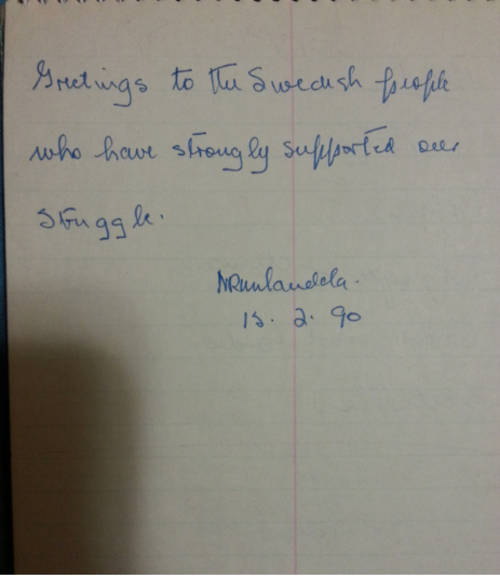 Greetings to the Swedish people
who have strongly supported our
struggle.
NRMandela.
15. 2. 90